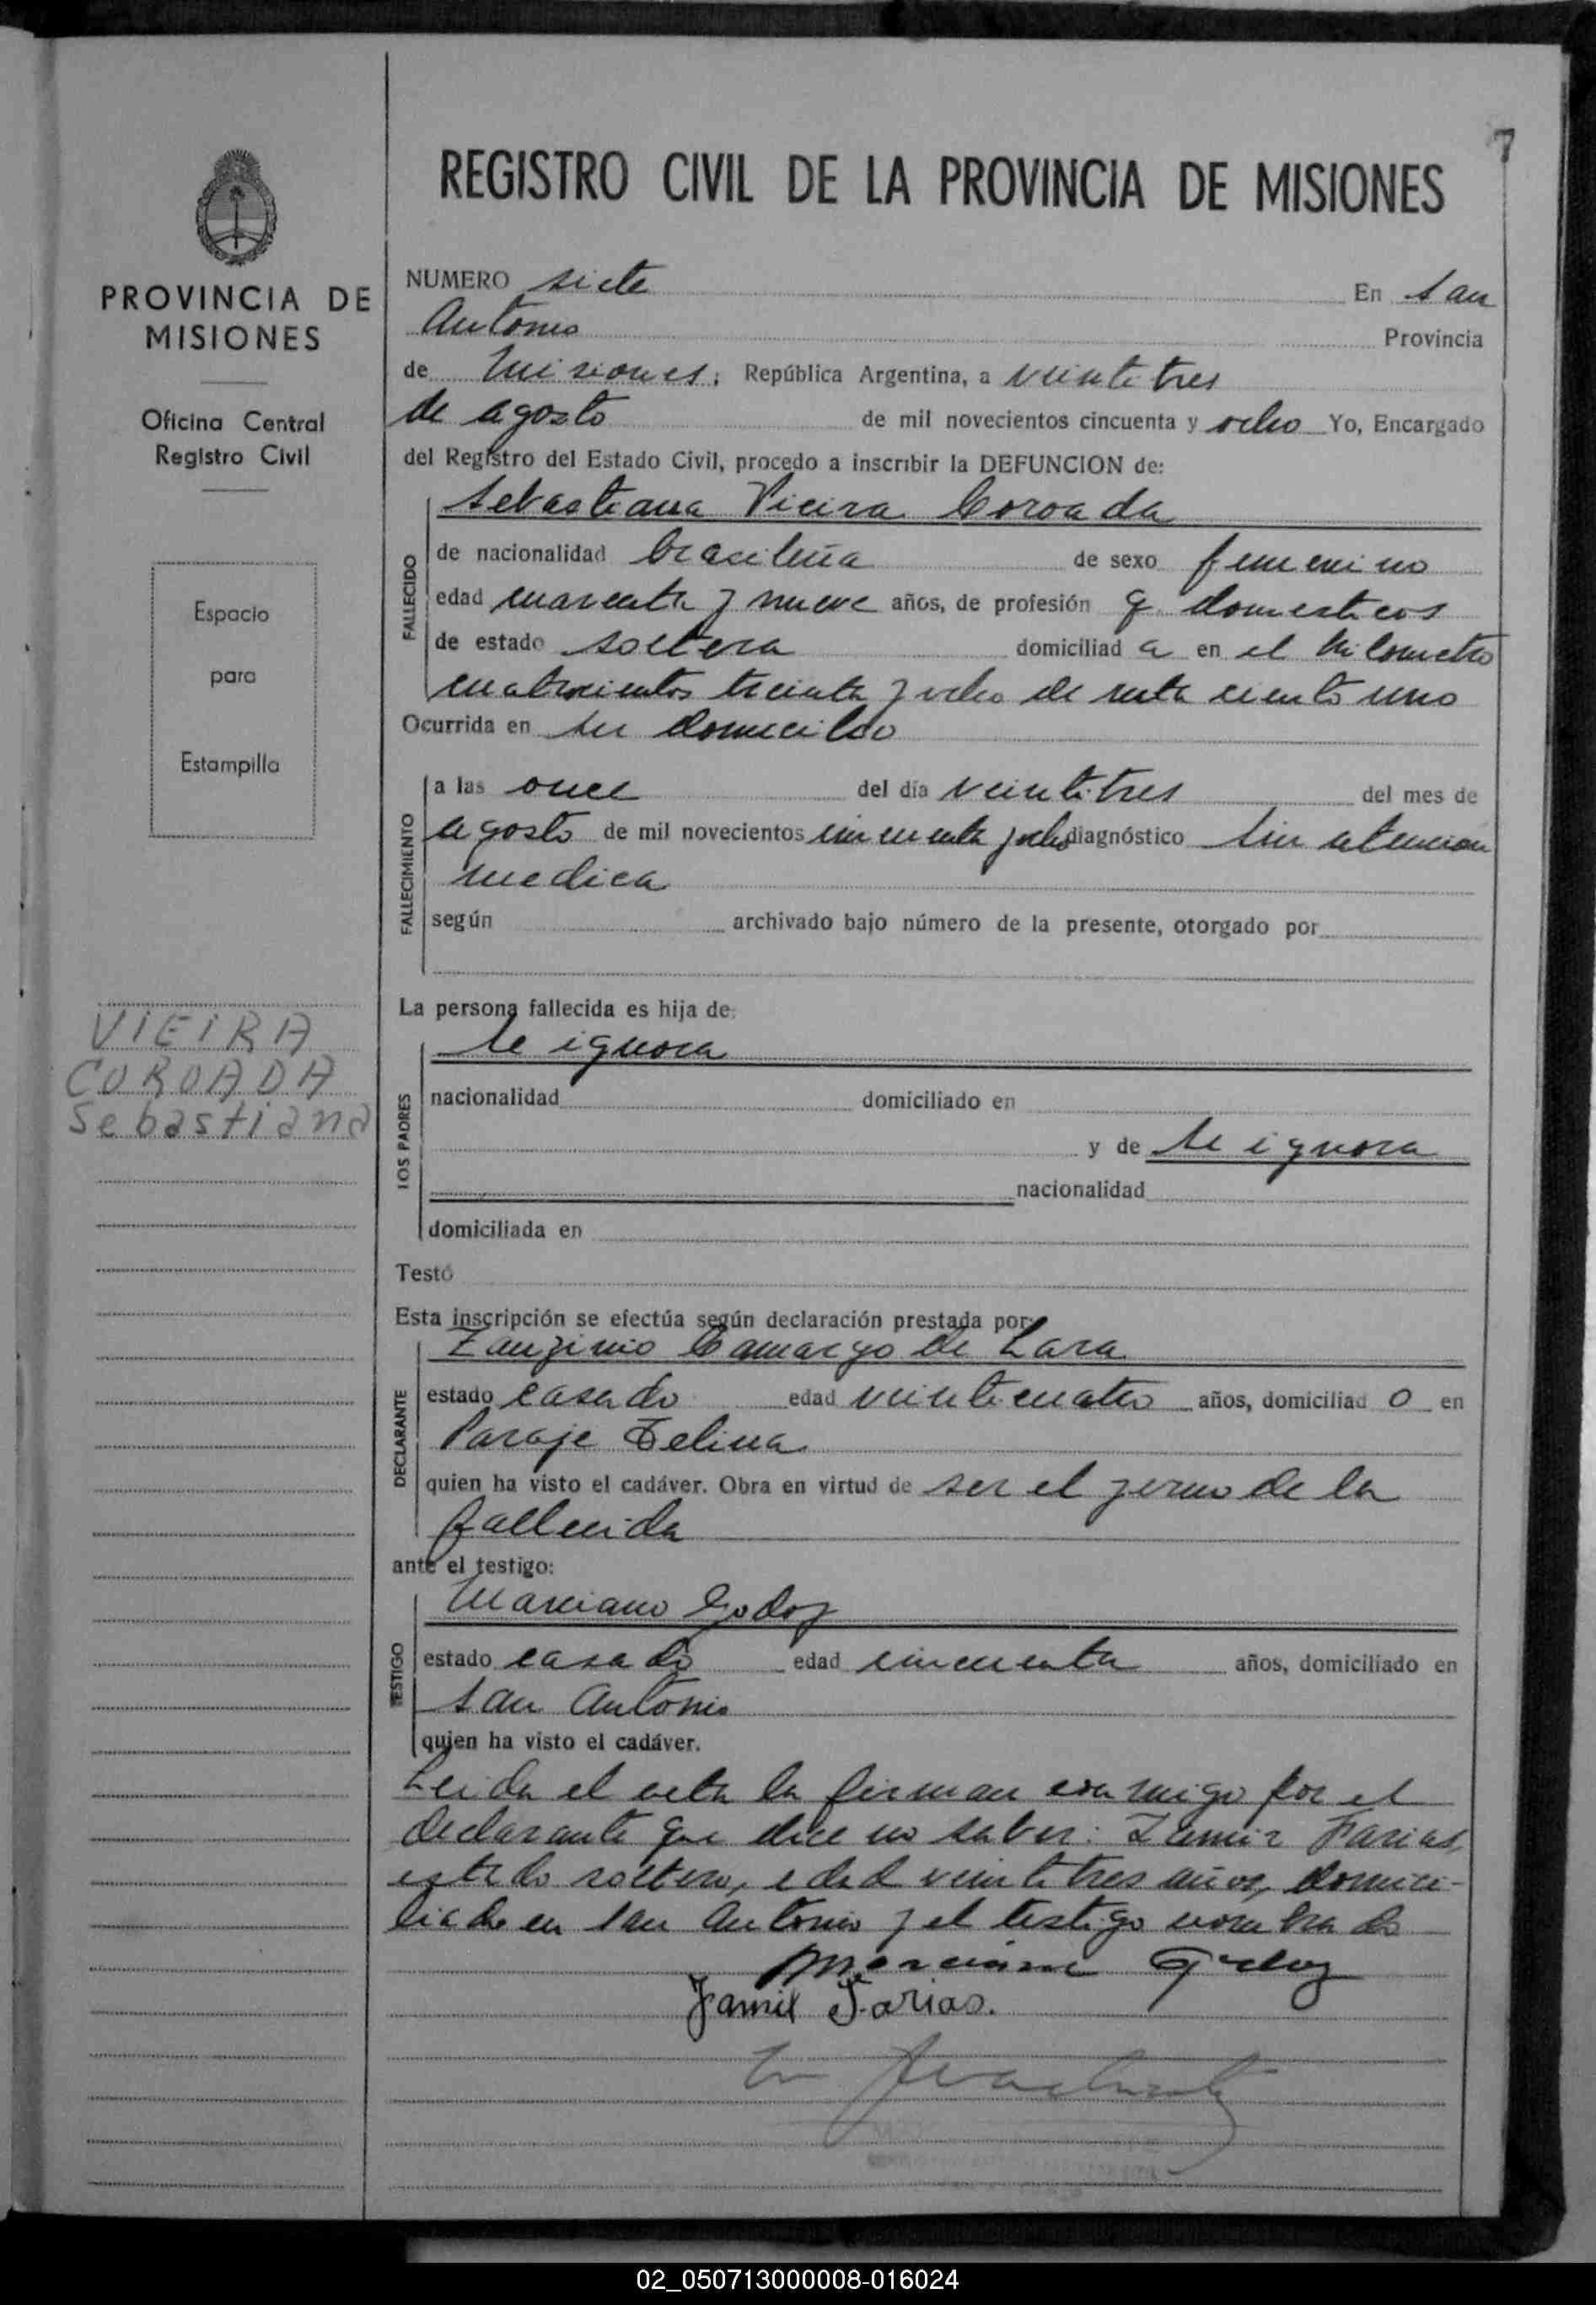 7
REGISTRO CIVIL DE LA PROVINCIA DE MISIONES
PROVINCIA DE
MISIONES
Oficina Central
Registro Civil
Espacio
para
Estampilla
VIEIRA
COROADA
Sebastiana
NUMERO siete En San
Antonio Provincia
de Misiones; República Argentina, a veintitres
de agosto de mil novecientos cincuenta y ocho Yo, Encargado
del Registro del Estado Civil, procedo a inscribir la DEFUNCION de:
Sebastiana Vieira Coroada
FALLECIDO
de nacionalidad brasileña de sexo femenino
edad cuarenta y nueve años, de profesión q. domesticos
de estado soltera domiciliad a en el kilometro
cuatrocientos treinta y ocho de ruta ciento uno
Ocurrida en su domicilio
FALLECIMIENTO
a las once del día veintitres del mes de
agosto de mil novecientos cincuenta y ocho diagnóstico Sin atencion
medica
según archivado bajo número de la presente, otorgado por
La persona fallecida es hija de:
Se ignora
LOS PADRES
nacionalidad domiciliado en
y de Se ignora
nacionalidad
domiciliada en
Testó
Esta inscripción se efectúa según declaración prestada por:
Camargo de Lara
DECLARANTE
estado casado edad veinticuatro años, domiciliad o en
Paraje Celina
quien ha visto el cadáver. Obra en virtud de ser el yerno de la
fallecida
ante el testigo:
Marciano Godoy
TESTIGO
estado casado edad cincuenta años, domiciliado en
San Antonio
quien ha visto el cadáver.
Leida el acta la firman conmigo por el
declarante que dice no saber: Farias,
estado soltero, edad veintitres años, domici-
liado en San Antonio y el testigo nombrado
Marciano Godoy
Jamil Farias.
02_050713000008-016024